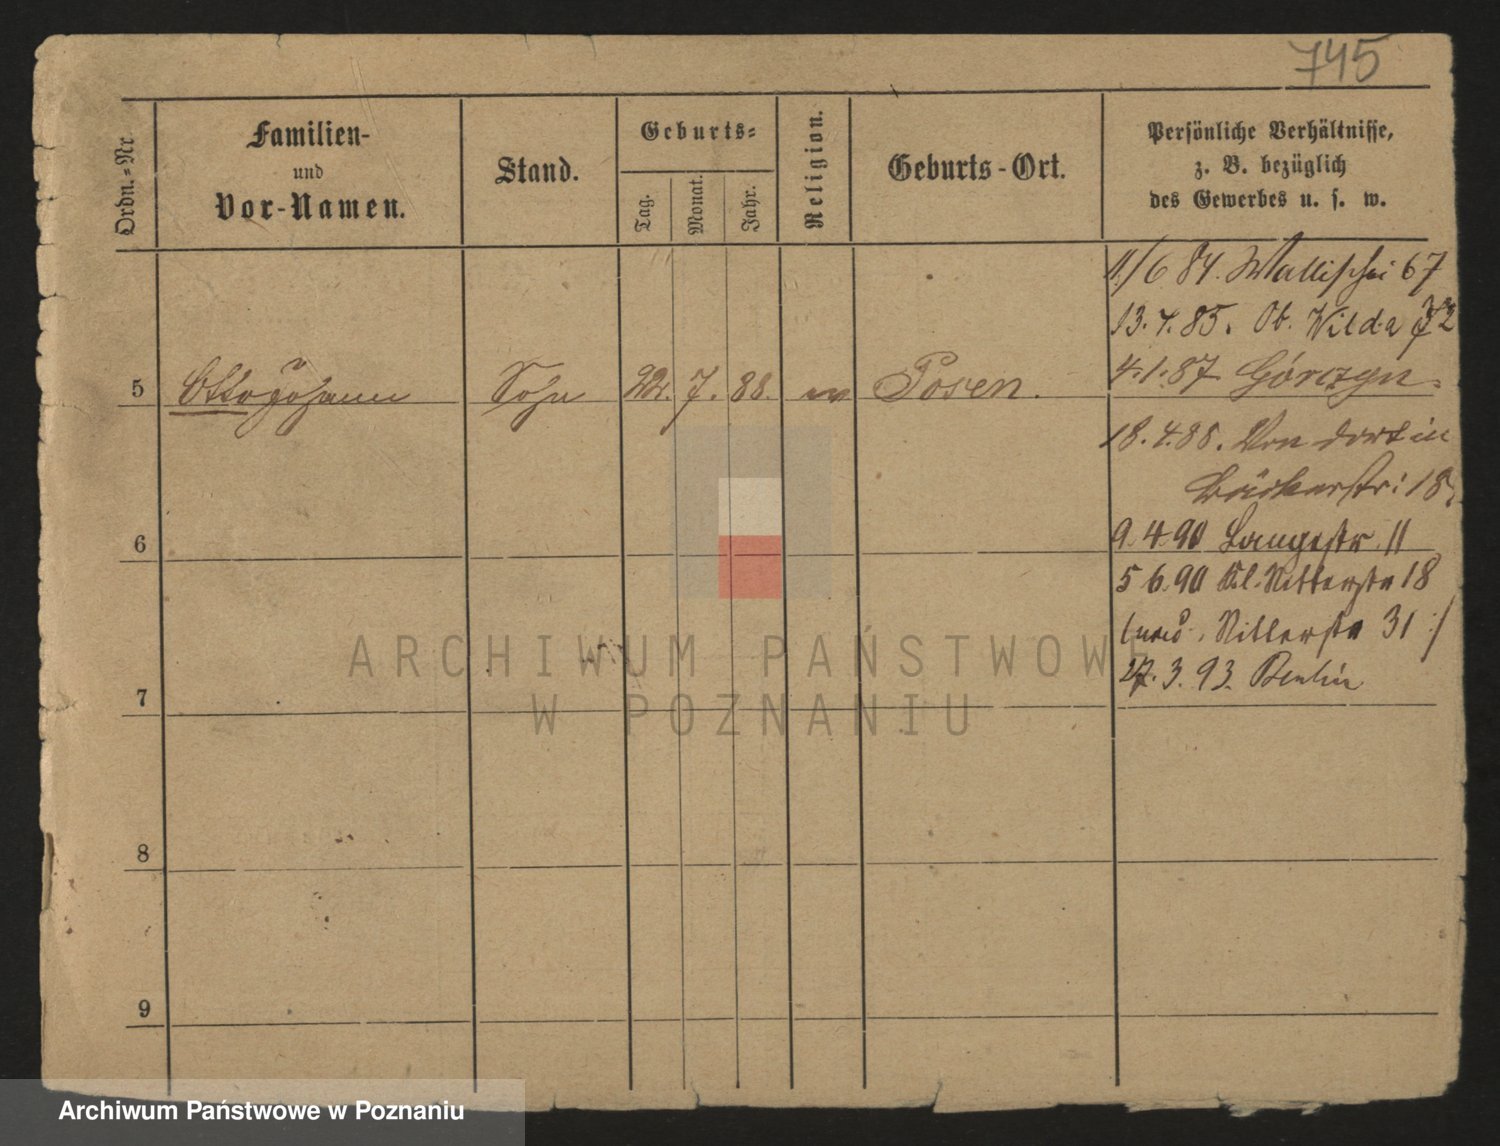 745
Ordn.-Nr.
Familien-
und
Vor-Namen.
Stand.
Geburts-
Tag.
Monat.
Jahr.
Religion.
Geburts-Ort.
Persönliche Verhältnisse,
z. B. bezüglich
des Gewerbes u. s. w.
11/6 84. Wallischei 67
13.4.85. Ob. Wilda 72
4.1.87 Górczyn.
5 Otto Johann Sohn 22. 7. 88. Posen.
18.4.88. Von dort in
Bäckerstr: 18
9.4.90 Langestr. 11
6
5 6.90 Kl. Ritterstr 18
Ritterstr 31 :/
27.3.93. Berlin
7
8
9
ARCHIWUM PAŃSTWOWE
W POZNANIU
Archiwum Państwowe w Poznaniu